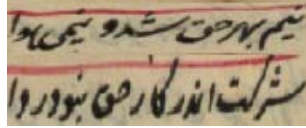 نیم بهر حق شد و نیمی هوا
شرکت اندر کار حق نبود روا